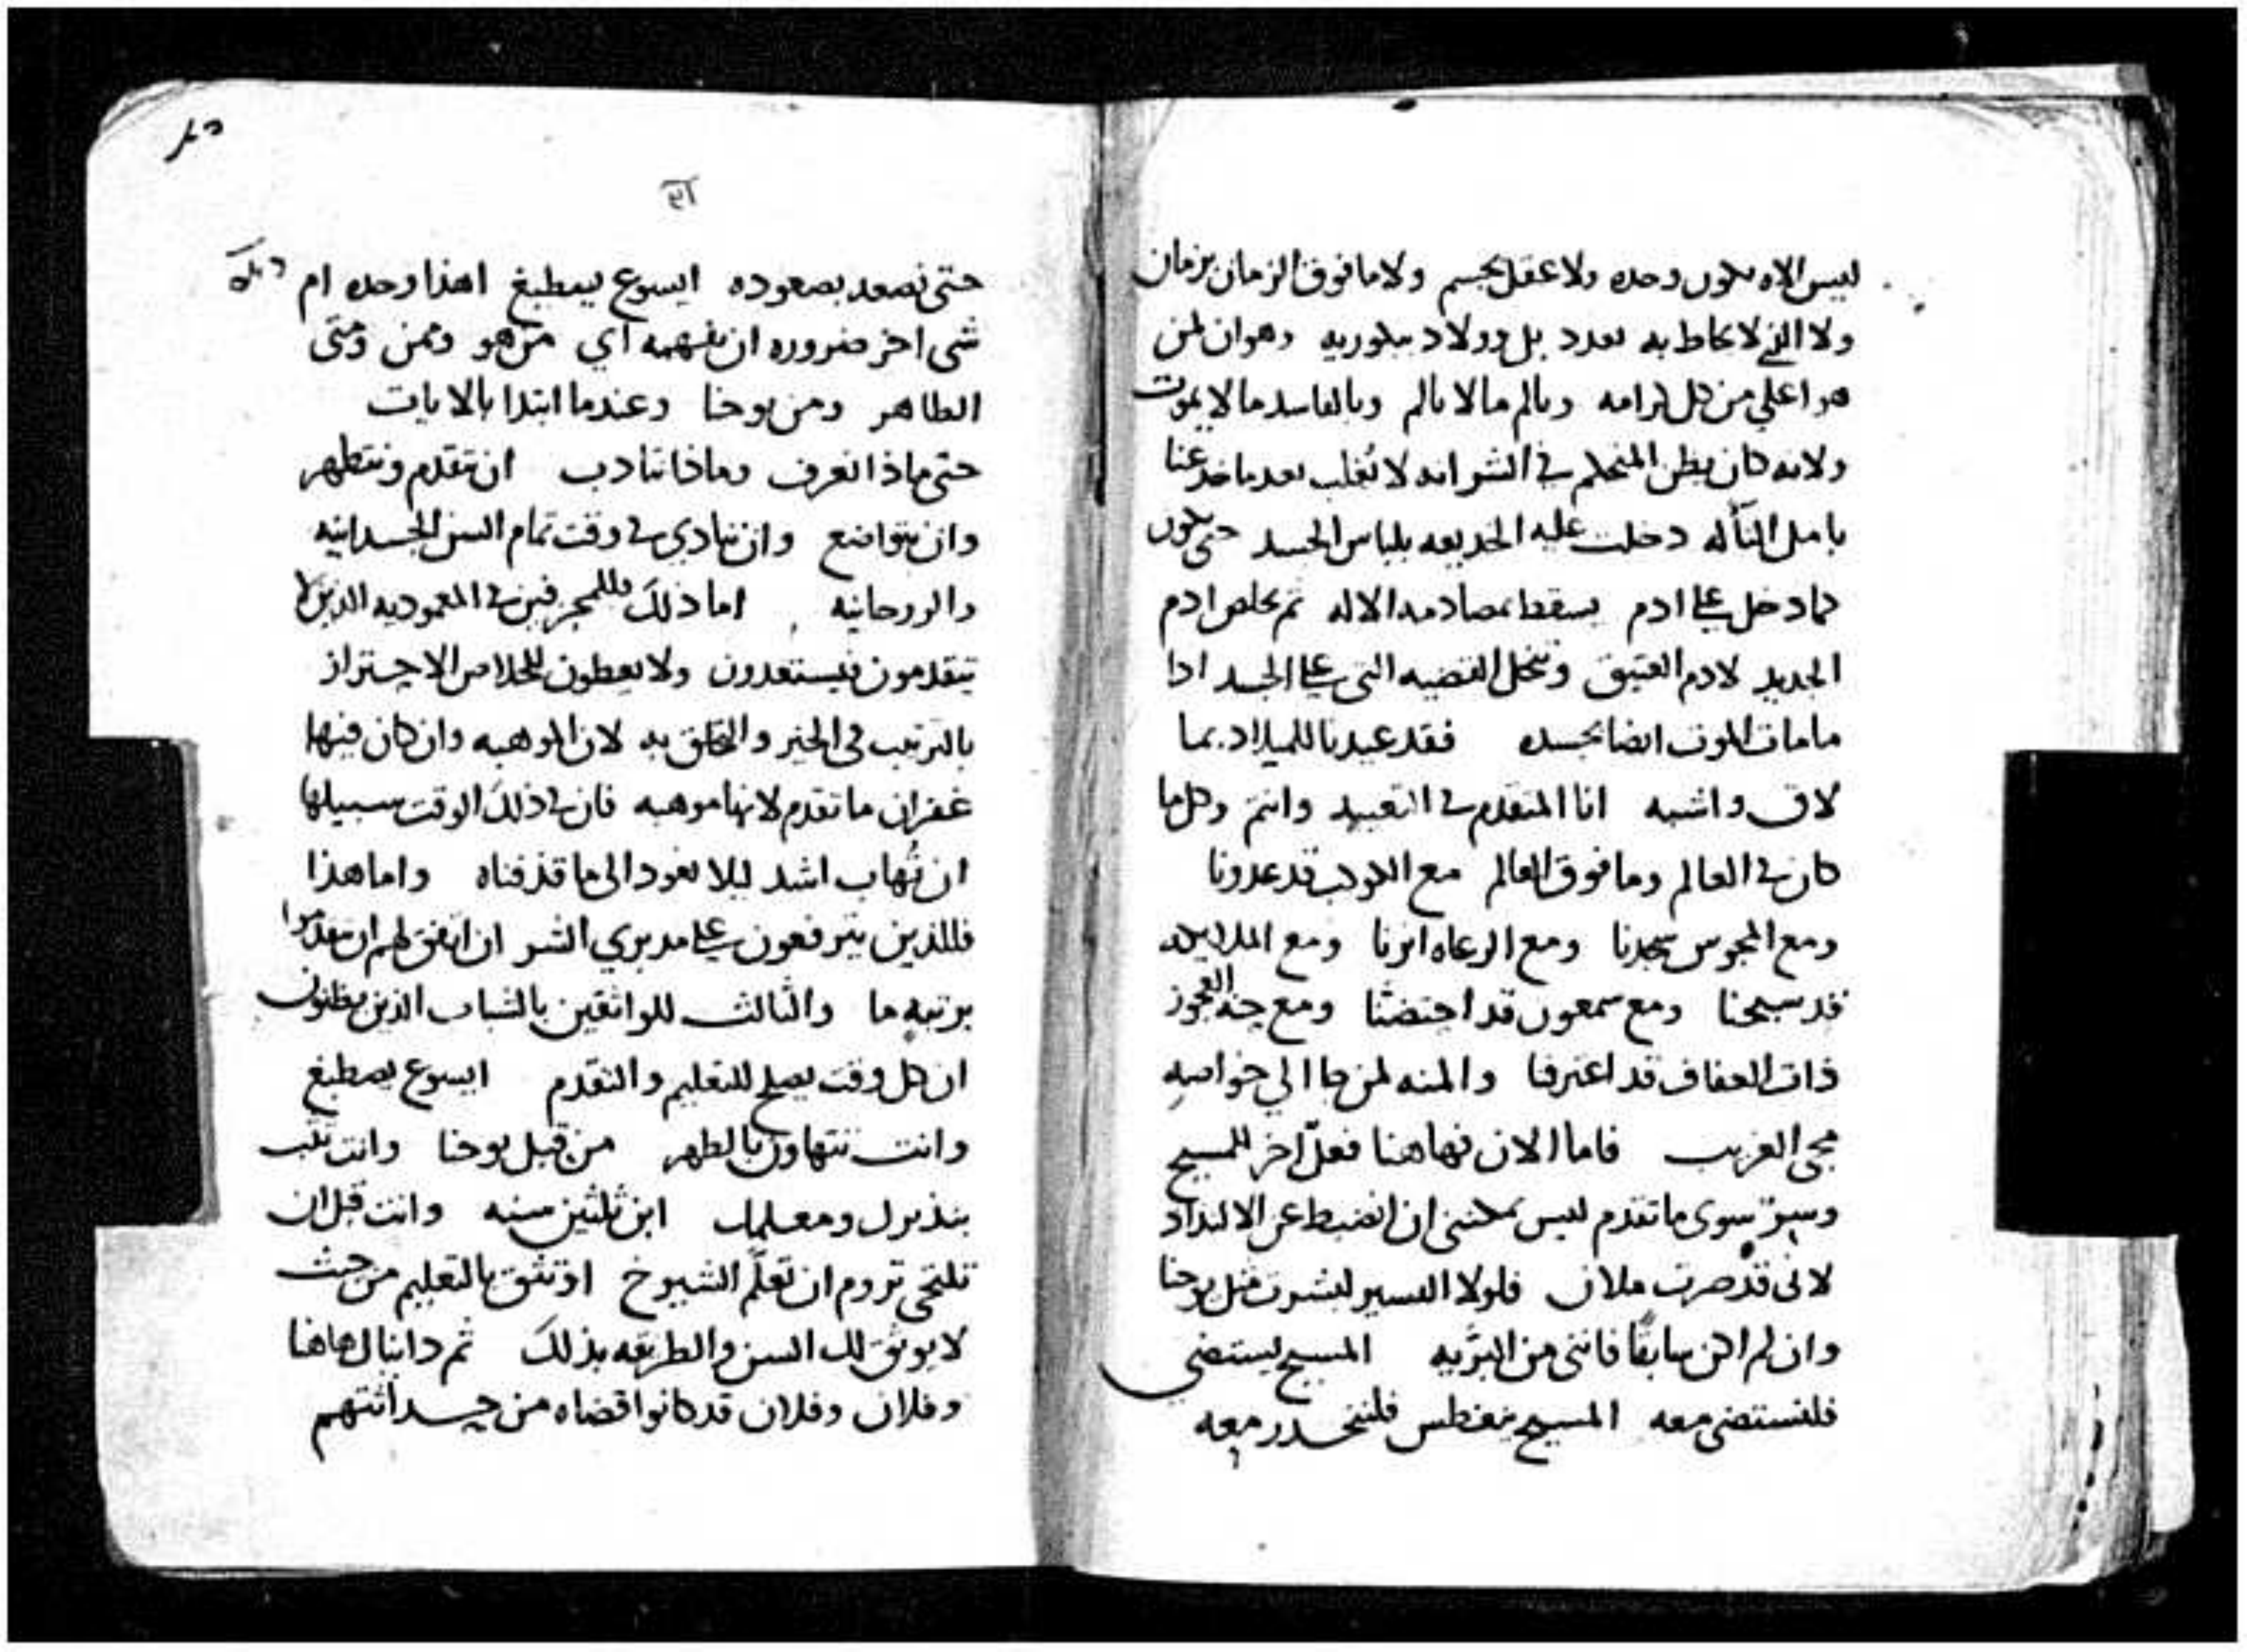 ليس الاه يكون وحده ولا عقل بجسم ولا ما فوق الزمان بزمان
ولا الذي لا يحاط به بعدد بل وولاد بكوريه وهوان لمن
هو اعلى من كل كرامه وبالم ما لا يالم وبالفاسد ما لا يموت
ولانه كان يظن المتحكم في الشر انه لا يُغلب بعد ما خدعنا
بامل التأله دخلت عليه الخديعه بلباس الجسد حتى يكون
كما دخل على ادم يسقط بمصادمه الاله ثم يخلص ادم
الجديد لادم العتيق وتنحل القضيه التي على الجسد اذا
ما مات الموت ايضا بجسده فقد عيدنا للميلاد بما
لاق واشبه انا المتقدم في التعييد وانتم وكل ما
كان في العالم وما فوق العالم مع الكوكب قد عدونا
ومع المجوس سجدنا ومع الرعاه انرنا ومع الملايكه
قد سبحنا ومع سمعون قد احتضنا ومع حنه العجوز
ذات العفاف قد اعترفنا والمنه لمن جا الي خواصه
مجى الغريب فاما الان فهاهنا فعلٌ اخر للمسيح
وسرٌ سوى ما تقدم ليس يمكنني ان انضبط عن الالتداد
لاني قد صرت ملان فلولا اليسير لبشرت مثل يوحنا
وان لم اكن سابقًا فانني من البرّيه المسيح يستضي
فلنستضي معه المسيح يغطس فلننحدر معه
حتى نصعد بصعوده ايسوع يصطبغ اهذا وحده ام
شى اخر ضروره ان نفهمه اي من هو وممن ومتى
الطاهر ومن يوحنا وعندما ابتدا بالايات
حتى ماذا نعرف وماذا نتادب ان نتقدم ونتطهر
وان نتواضع وان ننادي في وقت تمام السن الجسدانيه
والروحانيه اما ذلك فللمجزفين في المعموديه الذين لا
يتقدمون فيستعدون ولا يعطون للخلاص الاحتراز
بالترتيب في الخير والتخلق به لان الموهبه وان كان فيها
غفران ما تقدم لانها موهبه فان في ذلك الوقت سبيلها
ان تُهاب اشد ليلا نعود الى ما قذفناه واما هذا
فللذين يترفعون على مدبري الشر ان اتفق لهم ان تقدموا
برتبه ما والثالث للواثقين بالشباب الذين يظنون
ان كل وقت يصلح للتعليم والتقدم ايسوع يصطبغ
وانت تتهاون بالطهر من قبل يوحنا وانت تثب
بنذيرك ومعلمك ابن ثلثين سنه وانت قبل ان
تلتحي تروم ان تعلّم الشيوخ او تثق بالتعليم من حيث
لا يوثق لك السن والطريقه بذلك ثم دانيال هاهنا
وفلان وفلان قد كانوا قضاه من حداثتهم